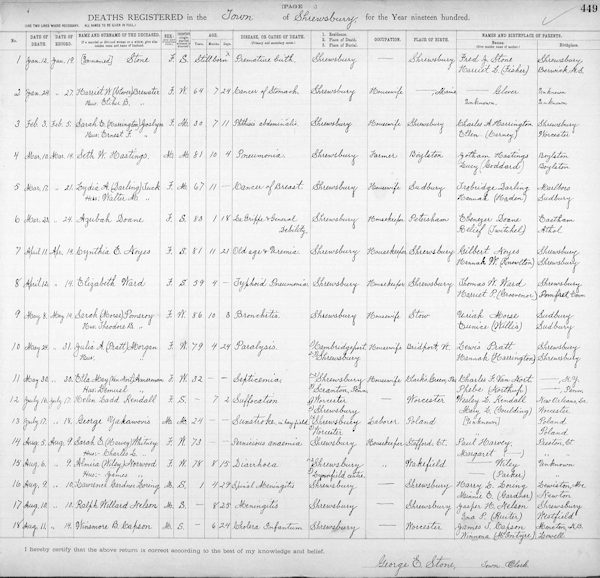 PAGE 3
449
DEATHS REGISTERED in the Town of Shrewsbury, for the Year nineteen hundred.
(USE TWO LINES WHERE NECESSARY. ALL NAMES TO BE GIVEN IN FULL.)
No. DATE OF DEATH. DATE OF RECORD. NAME AND SURNAME OF THE DECEASED. SEX. AGE. Years. Mos. Days. DISEASE, OR CAUSE OF DEATH. 1. Residence. 2. Place of Death. 3. Place of Burial. OCCUPATION. PLACE OF BIRTH. NAMES AND BIRTHPLACE OF PARENTS. Birthplace.
1 Jan. 12. Jan. 19. Stone F. S. Stillborn Premature birth Shrewsbury Shrewsbury Fred J. Stone Shrewsbury
Harriet L. (Fisher) Berwick
2 Jan. 24. " 27. Harriet W. (Glover) Brewster F. W. 64 7 24 Cancer of Stomach Shrewsbury Housewife Maine Glover Unknown
Unknown. Unknown
3 Feb. 3. Feb. 5. Sarah E. (Harrington) Joslyn F. M. 30 7 11 Phthisis abdominalis Shrewsbury Housewife Shrewsbury Charles A. Harrington Shrewsbury
Hus. Ernest F. " Ellen Worcester
4 Mar. 10. Mar. 14. Seth W. Hastings. M. M. 81 10 4 Pneumonia. Shrewsbury Farmer Boylston Jotham Hastings Boylston
Lucy (Goddard) Boylston
5 Mar. 17. " 21. Lydia A. (Darling) F. M. 67 11 Cancer of Breast. Shrewsbury Housewife Sudbury Darling Marlboro
Hus: Walter M. " Hannah (Haden) Sudbury
6 Mar. 23. " 24. Azubah Doane F. S. 83 1 18 La Grippe & General Shrewsbury Housekeeper Petersham Ebenezer Doane Eastham
Debility. Relief (Twitchel) Athol
7 April 11. Apr. 14. Cynthia E. Noyes F. S. 81 11 23 Old age & Shrewsbury Housekeeper Shrewsbury Gilbert Noyes Shrewsbury
Hannah W. (Knowlton) Shrewsbury
8 April 12. " 14. Elizabeth Ward F. S. 59 4 Typhoid Pneumonia Shrewsbury Housekeeper Shrewsbury Thomas W. Ward Shrewsbury
Harriet P. (Grosvenor) Pomfret, Conn
9 May 8. May 14. Sarah (Morse) Pomeroy F. W. 86 10 3 Bronchitis Shrewsbury Housewife Stow Uriah Morse Sudbury
Hus. Theodore B. " Eunice (Willis) Sudbury
10 May 29. " 31. Julia A. (Pratt) Morgan F. W. 79 4 24 Paralysis. Cambridgeport Housewife Bridport, Vt. Lewis Pratt Shrewsbury
Hus. Shrewsbury Hannah (Harrington) Shrewsbury
11 May 30. " 30. Ella May F. W. 32 Septicemia. Shrewsbury Housewife Charles F. N.Y.
Hus. Scranton, Penn Phebe Penn
12 July 16. July 17. Helen Ladd Kendall F. S. 7 2 Suffocation Worcester Worcester Wesley L. Kendall New Orleans La.
Shrewsbury Mary C. (Boulding) Worcester
13 July 17. " 18. George M. M. 27 Sunstroke, Shrewsbury Laborer Poland (Unknown) Poland
Worcester Poland
14 Aug. 5. Aug. 9. Sarah E. (Harvey) Whitney F. W. 73 Pernicious anaemia Shrewsbury Housekeeper Stafford, Ct. Paul Harvey Preston, Ct.
Hus. Charles L. " Margaret
15 Aug. 6. " 9. Almira (Wiley) Norwood F. W. 78 8 15 Diarrhoea Shrewsbury Wakefield Wiley Unknown
Hus. James " Lynnfield Centre (Parker) "
16 Aug. 9. " 10. Lawrence Gardner Loring M. S. 1 4 29 Spinal Meningitis Shrewsbury Shrewsbury Harry L. Loring Lewiston, Me
Minnie E. (Gardner) Newton
17 Aug. 10. " 10. Ralph Willard Nelson M. S. 8 25 Meningitis Shrewsbury Shrewsbury Jasper H. Nelson Shrewsbury
Ena P. (Reuter) Westfield
18 Aug. 11. " 14. Winsmore B. Capson M. S. 6 24 Cholera Infantum Shrewsbury Worcester James S. Capson Moncton, N.B.
Winnona (McIntyre) Lowell
I hereby certify that the above return is correct according to the best of my knowledge and belief.
George E. Stone, Town Clerk